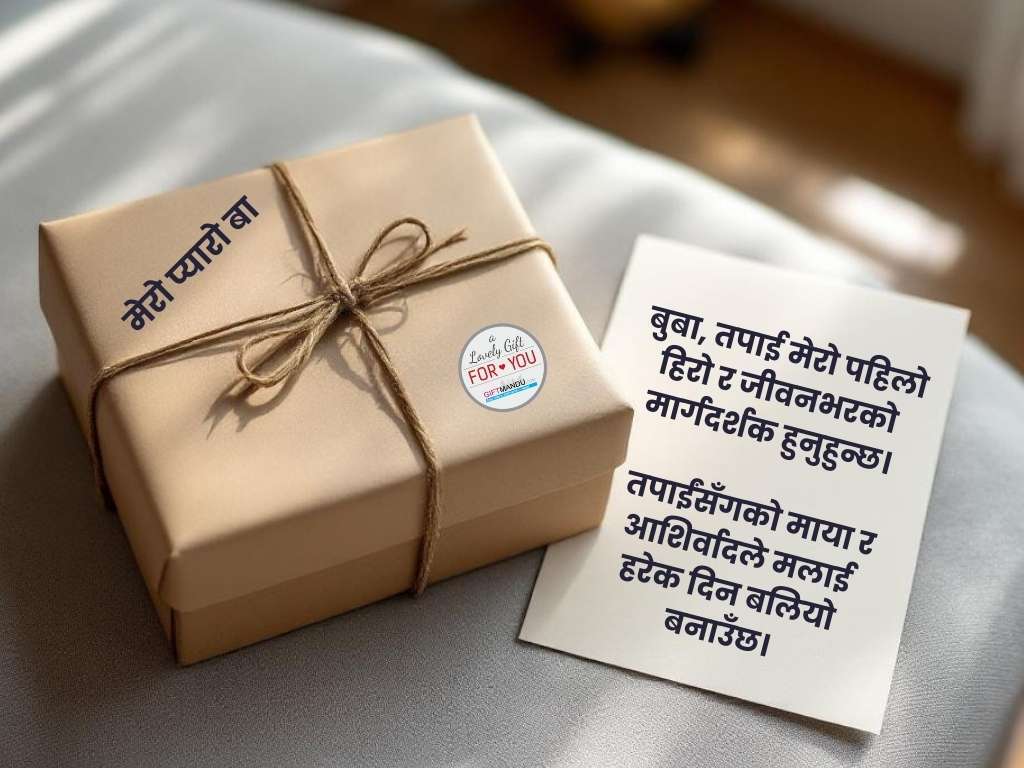 मेरो प्यारो बा
a
Lovely Gift
FOR YOU
GIFTMANDU
बुबा, तपाई मेरो पहिलो
हिरो र जीवनभरको
मार्गदर्शक हुनुहुन्छ।
तपाईसँगको माया र
आशिर्वादले मलाई
हरेक दिन बलियो
बनाउँछ।